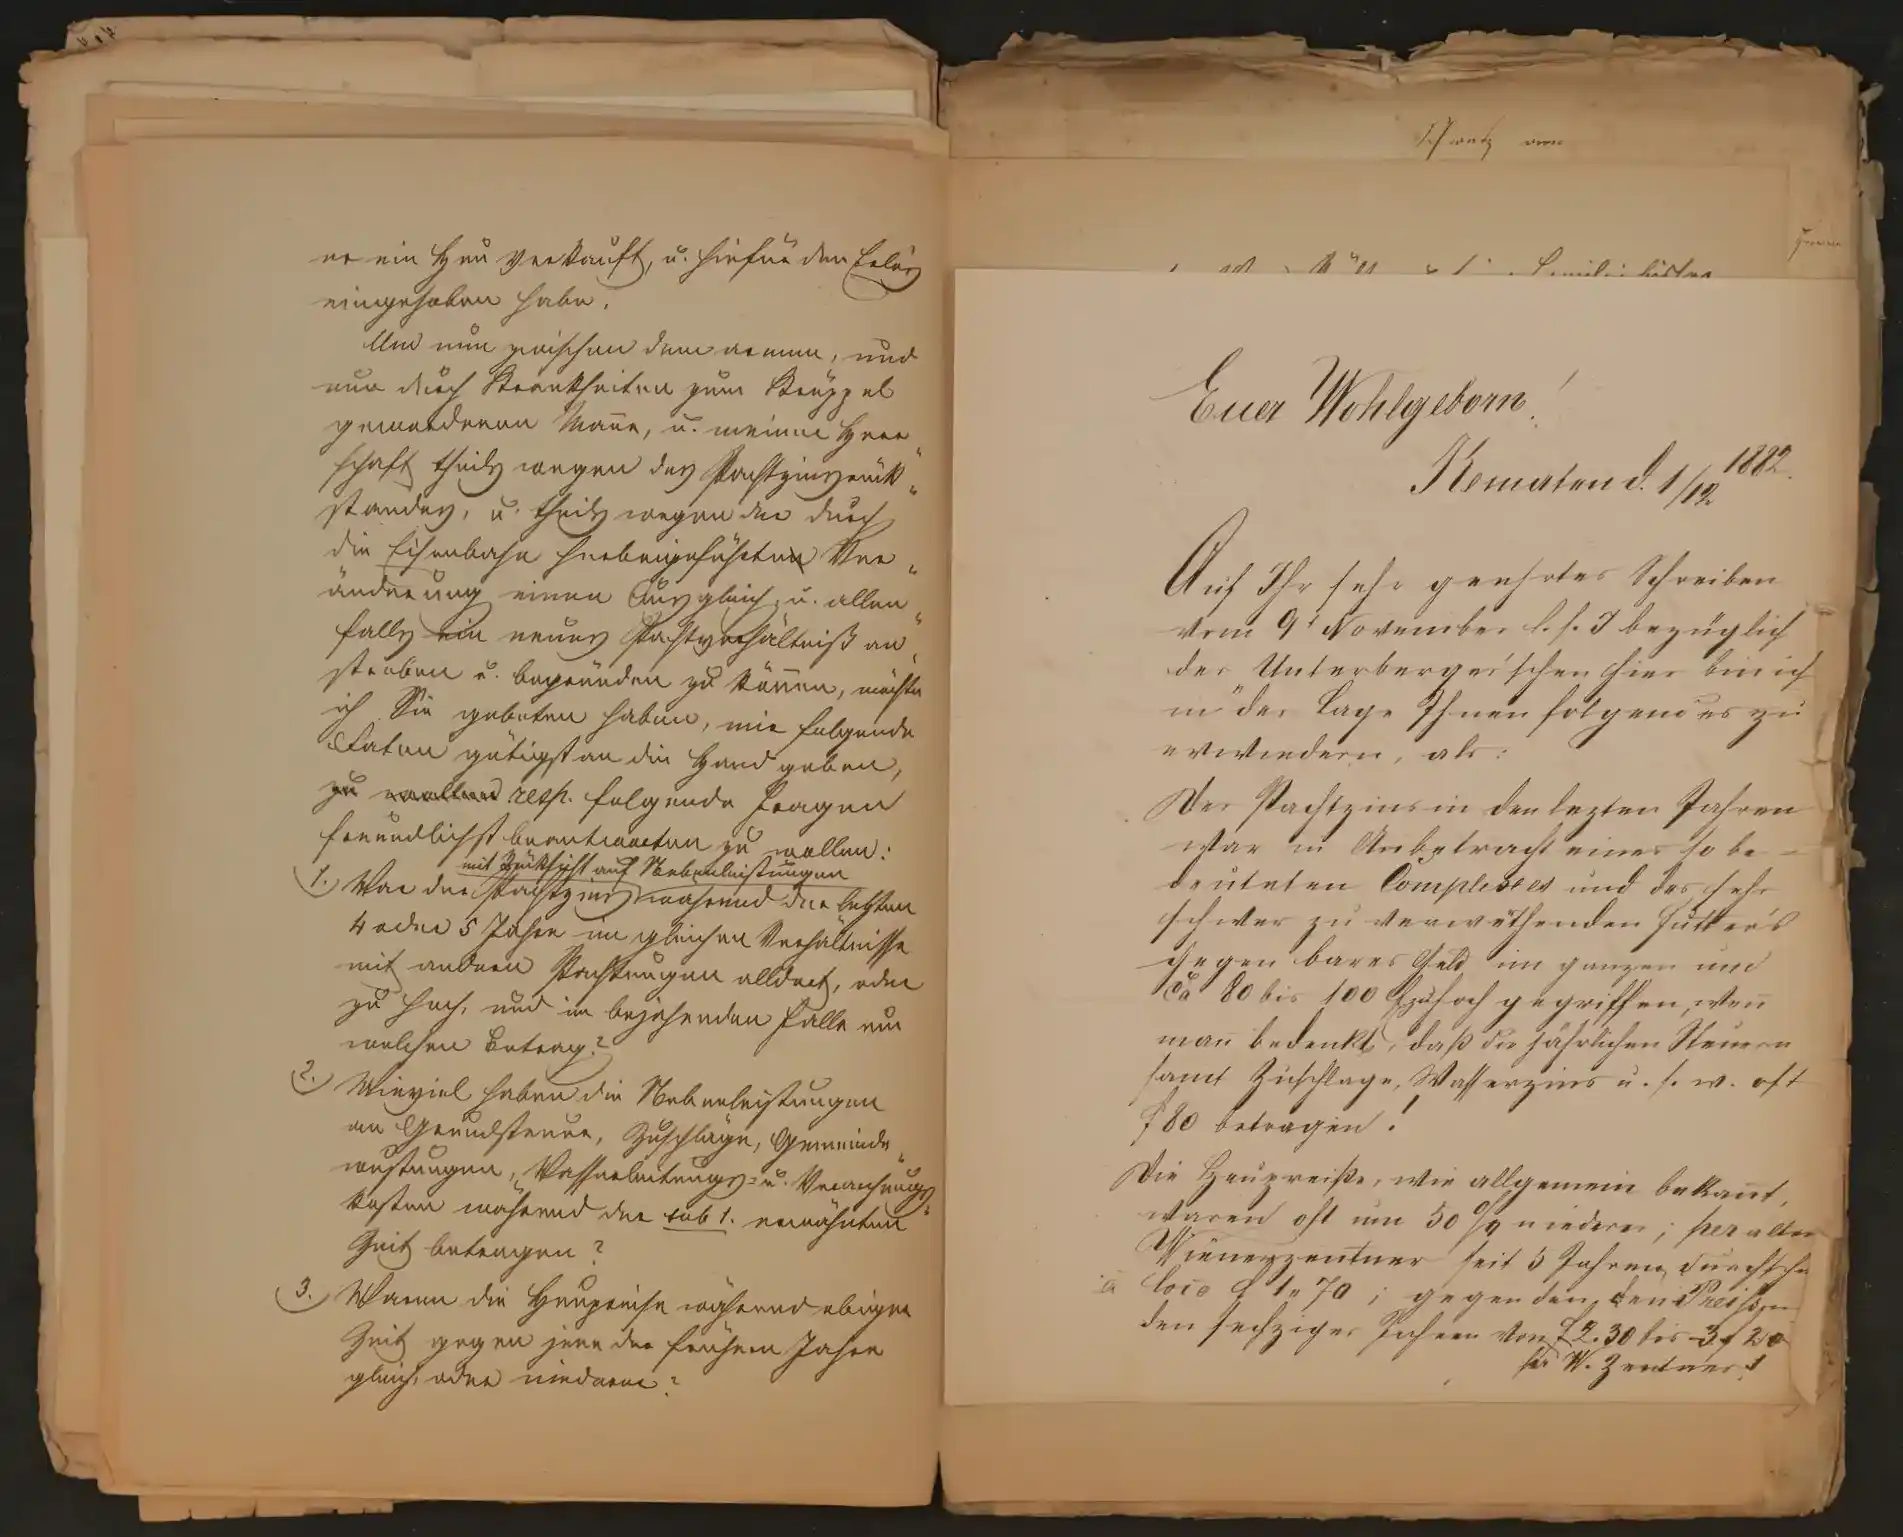 er ein Heu verkauft, u. hiefür den Erlös
eingehoben habe.
Um nun zwischen dem armen, und
nun durch Krankheiten zum Krüppel
gewordenen Mann, u. meiner Herr„
schaft theils wegen des Pachtzinsrück„
standes, u. theils wegen der durch
die Eisenbahn herbeigeführten Ver„
änderung einen Ausgleich, u. allen„
falls ein neues Pachtverhältniß an„
streben u. begründen zu können, möchte
ich Sie gebeten haben, mir folgende
Daten gütigst an die Hand geben,
zu wollen resp. folgende Fragen
freundlichst beantworten zu wollen:
mit Rücksicht auf Nebenleistungen
1.) War der Pachtzins während der letzten
4 oder 5 Jahre im gleichen Verhältnisse
mit andern Pachtungen alldort, oder
zu hoch, und im bejahenden Falle um
welchen Betrag?
2.) Wieviel haben die Nebenleistungen
an Grundsteuer, Zuschläge, Gemeinde„
Wasserleitungs- u.
kosten während der sub 1. erwähnten
Zeit betragen?
3.) Waren die Heupreise während obiger
Zeit gegen jene der frühern Jahre
gleich, oder niederer?
Schwatz vom
Euer Wohlgeborn!
Kematen d. 1/12 1882.
Auf Ihr sehr geehrtes Schreiben
vom 9t November l. J. bezüglich
der Unterberger'schen hier bin ich
in der Lage Ihnen folgendes zu
erwiedern, als:
Der Pachtzins in den lezten Jahren
war in Anbetracht eines so be-
deuteten Complexes und des sehr
schwer zu verwerthenden Futter's
gegen bares Geld im ganzen um
ca 80 bis 100 f zu hoch gegriffen, wen̄
man bedenkt, daß die jährlichen Steuern
samt Zuschlage, Wasserzins u. s. w. oft
f 80 betragen!
Die Heupreiße, wie allgemein bekan̄t,
waren oft um 50 % niederer; per alten
Wienerzentner seit 5 Jahren durchsch
a loco f 1„70; gegen den den Preisen
den sechziger Jahren von f 2.30 bis 3 f 20
per W. Zentner!